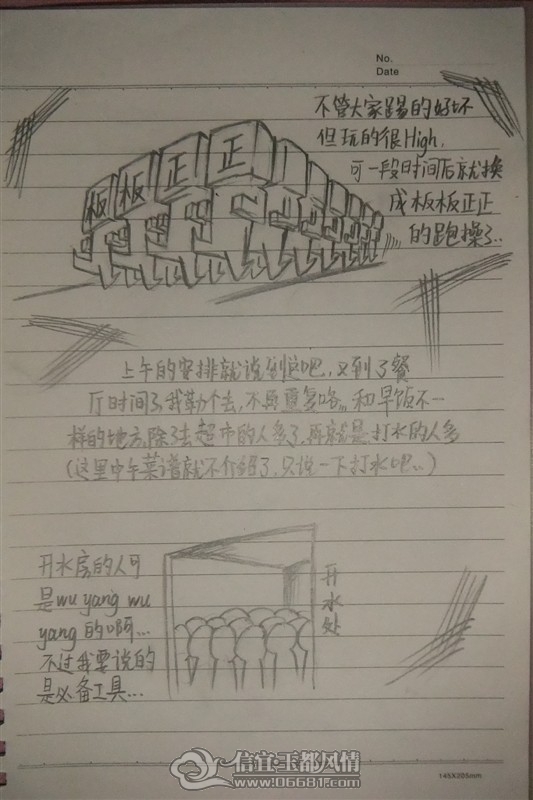 No.
Date
不管大家踢的好坏
但玩的很High,
可一段时间后就换
成板板正正
的跑操了..
板 板 正 正
上午的安排就说到这吧,又到了餐
厅时间了,我勒个去,不再重复咯。和早饭不一
样的地方,除了去超市的人多了,再就是打水的人多
(这里中午菜谱就不介绍了,只说一下打水吧..)
开水房的人可
是wu yang wu
yang 的啊...
不过我要说的
是必备工具...
开水处
信宜玉都风情
www.06681.com
145X205mm